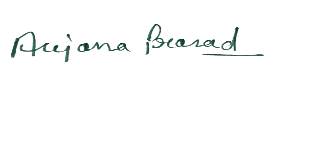 Arjana Prasad